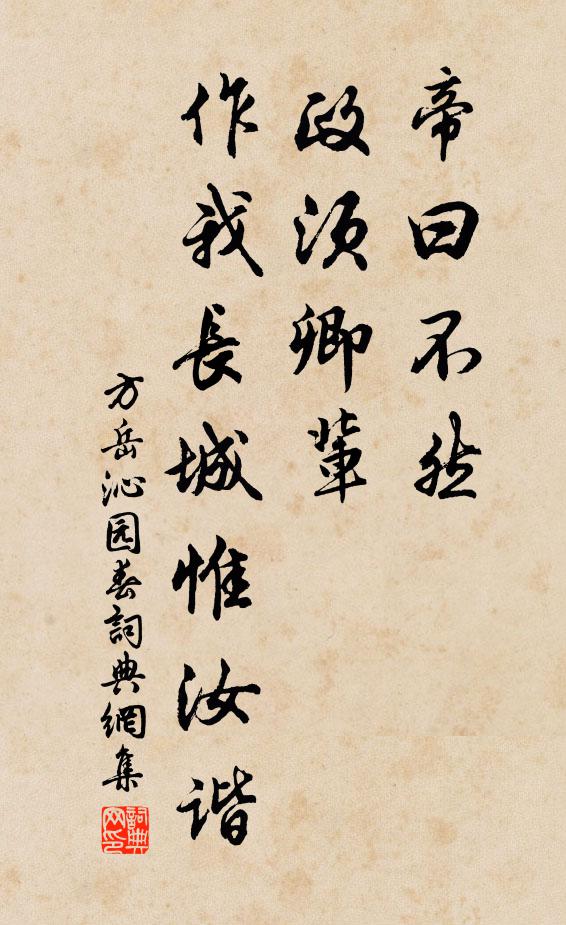 帝曰不然
政须卿輩
作我長城惟汝谐
方岳沁园春詞典網集
詞典
网印